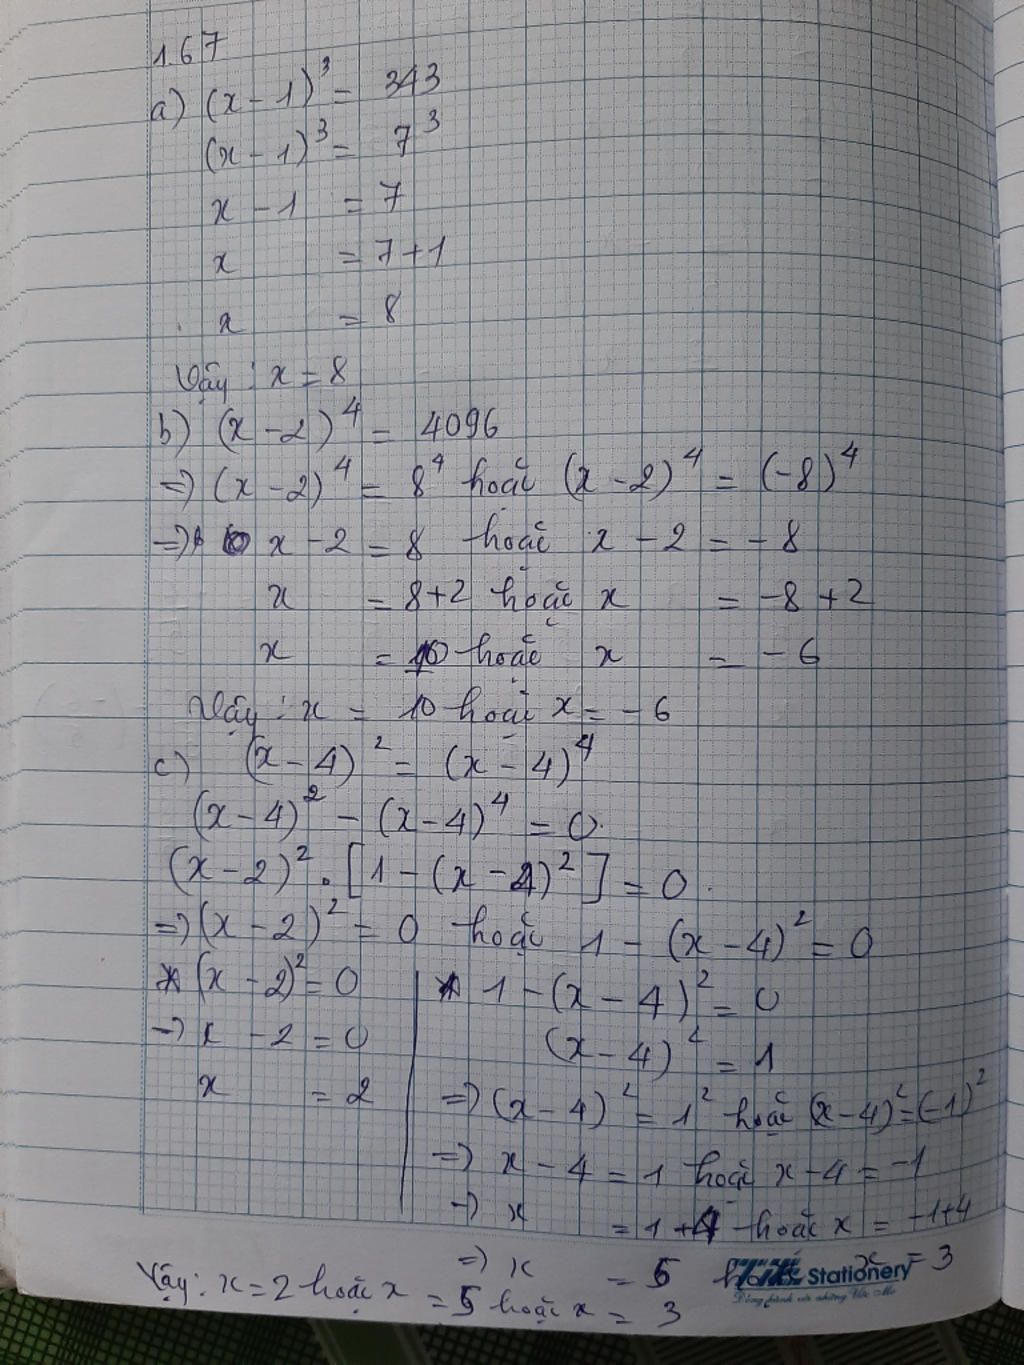 1.67
a) (x - 1)³ = 343
(x - 1)³ = 7³
x - 1 = 7
x = 7 + 1
x = 8
Vậy : x = 8
b) (x - 2)⁴ = 4096
=> (x - 2)⁴ = 8⁴ hoặc (x - 2)⁴ = (-8)⁴
=> x - 2 = 8 hoặc x - 2 = -8
x = 8+2 hoặc x = -8 + 2
x = 10 hoặc x = -6
Vậy : x = 10 hoặc x = -6
c) (x - 4)² = (x - 4)⁴
(x - 4)² - (x - 4)⁴ = 0.
(x - 2)² . [1 - (x - 4)²] = 0.
=> (x - 2)² = 0 hoặc 1 - (x - 4)² = 0
* (x - 2)² = 0
=> x - 2 = 0
x = 2
* 1 - (x - 4)² = 0
(x - 4)² = 1
=> (x - 4)² = 1² hoặc (x - 4)² = (-1)²
=> x - 4 = 1 hoặc x - 4 = -1
=> x = 1 + 4 hoặc x = -1+4
=> x = 5 hoặc x = 3
Vậy : x = 2 hoặc x = 5 hoặc x = 3
Stationery